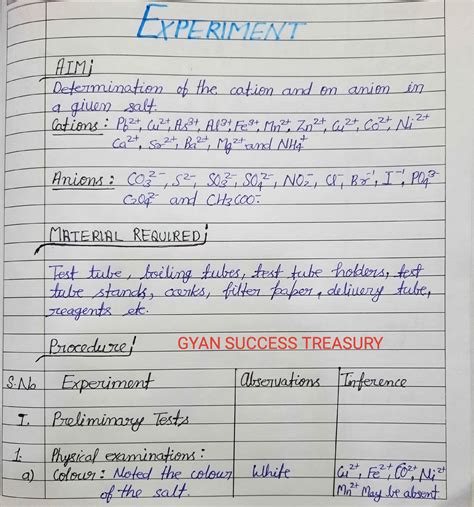 EXPERIMENT
AIM;
Determination of the cation and on anion in
a given salt.
Cations : Pb²⁺, Cu²⁺, As³⁺, Al³⁺, Fe³⁺, Mn²⁺, Zn²⁺, Cu²⁺, Co²⁺, Ni²⁺
Ca²⁺, Sr²⁺, Ba²⁺, Mg²⁺ and NH₄⁺
Anions : CO₃²⁻, S²⁻, SO₃²⁻, SO₄²⁻, NO₂⁻, Cl⁻, Br⁻¹, I⁻¹, PO₄³⁻
C₂O₄²⁻ and CH₃COO⁻
MATERIAL REQUIRED;
Test tube, boiling tubes, test tube holders, test
tube stands, corks, filter paper, delivery tube,
reagents etc.
Procedure; GYAN SUCCESS TREASURY
S.No Experiment Observations Inference
I. Preliminary Tests
1. Physical examinations :
a) Colour : Noted the colour White Cu²⁺, Fe²⁺, CO²⁺, Ni²⁺
of the salt. Mn²⁺ May be absent